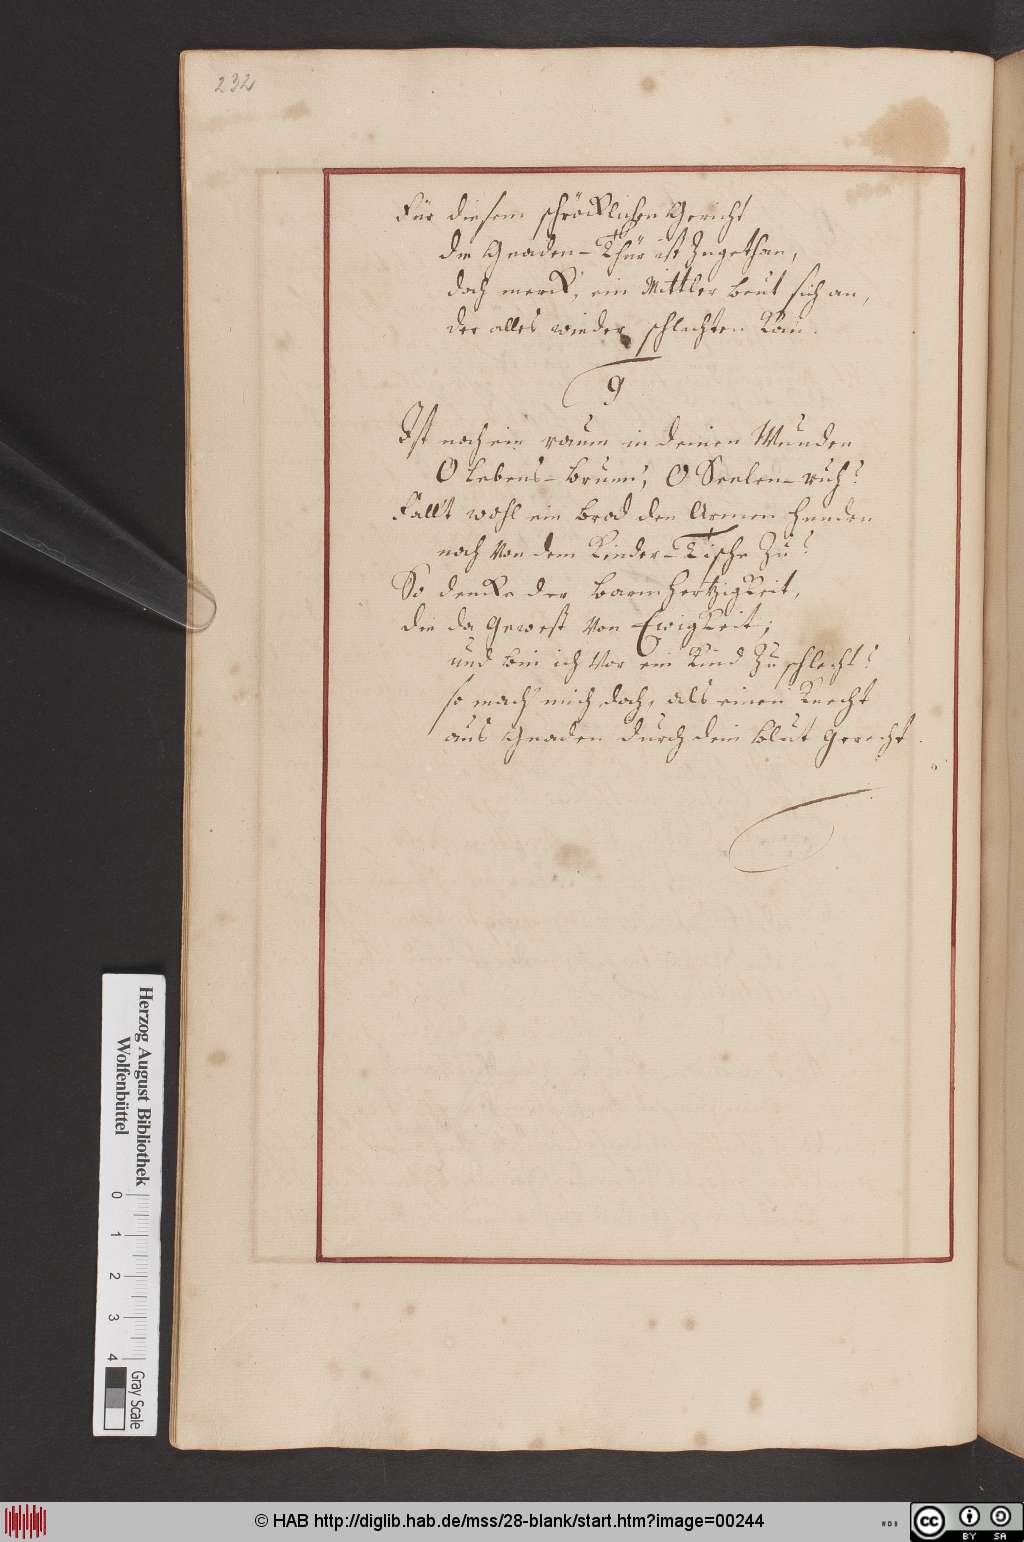 232
Für diesem schröcklichen Gericht
die Gnaden-Thür ist zugethan,
doch merck, ein Mittler beut sich an,
der alles wieder schlichten kan.
9
Ist noch ein raum in deinen Wunden
O lebens-brunn, O Seelen-ruh?
Fällt wohl ein brod den Armen hunden
noch von dem Kinder-Tische zu?
So dencke der barmhertzigkeit,
die da gewest von Ewigkeit;
und bin ich vor ein Kind zu schlecht?
so mach mich doch, als einen Knecht
aus Gnaden durch dein blut gerecht.
Herzog August Bibliothek
Wolfenbüttel
0 1 2 3 4
Gray Scale
© HAB http://diglib.hab.de/mss/28-blank/start.htm?image=00244
WDB
cc BY SA